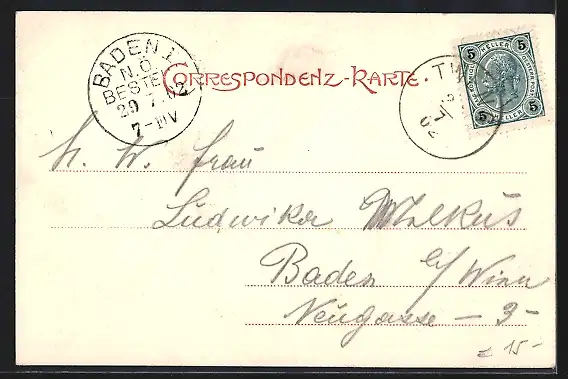 CORRESPONDENZ-KARTE
BADEN 1
N.Ö.
BESTE
29 7 02
7-IV
TW
5 HELLER 5
5 HELLER 5
frau
Ludwika
Baden b/ Wien
Neugasse - 3-
15-